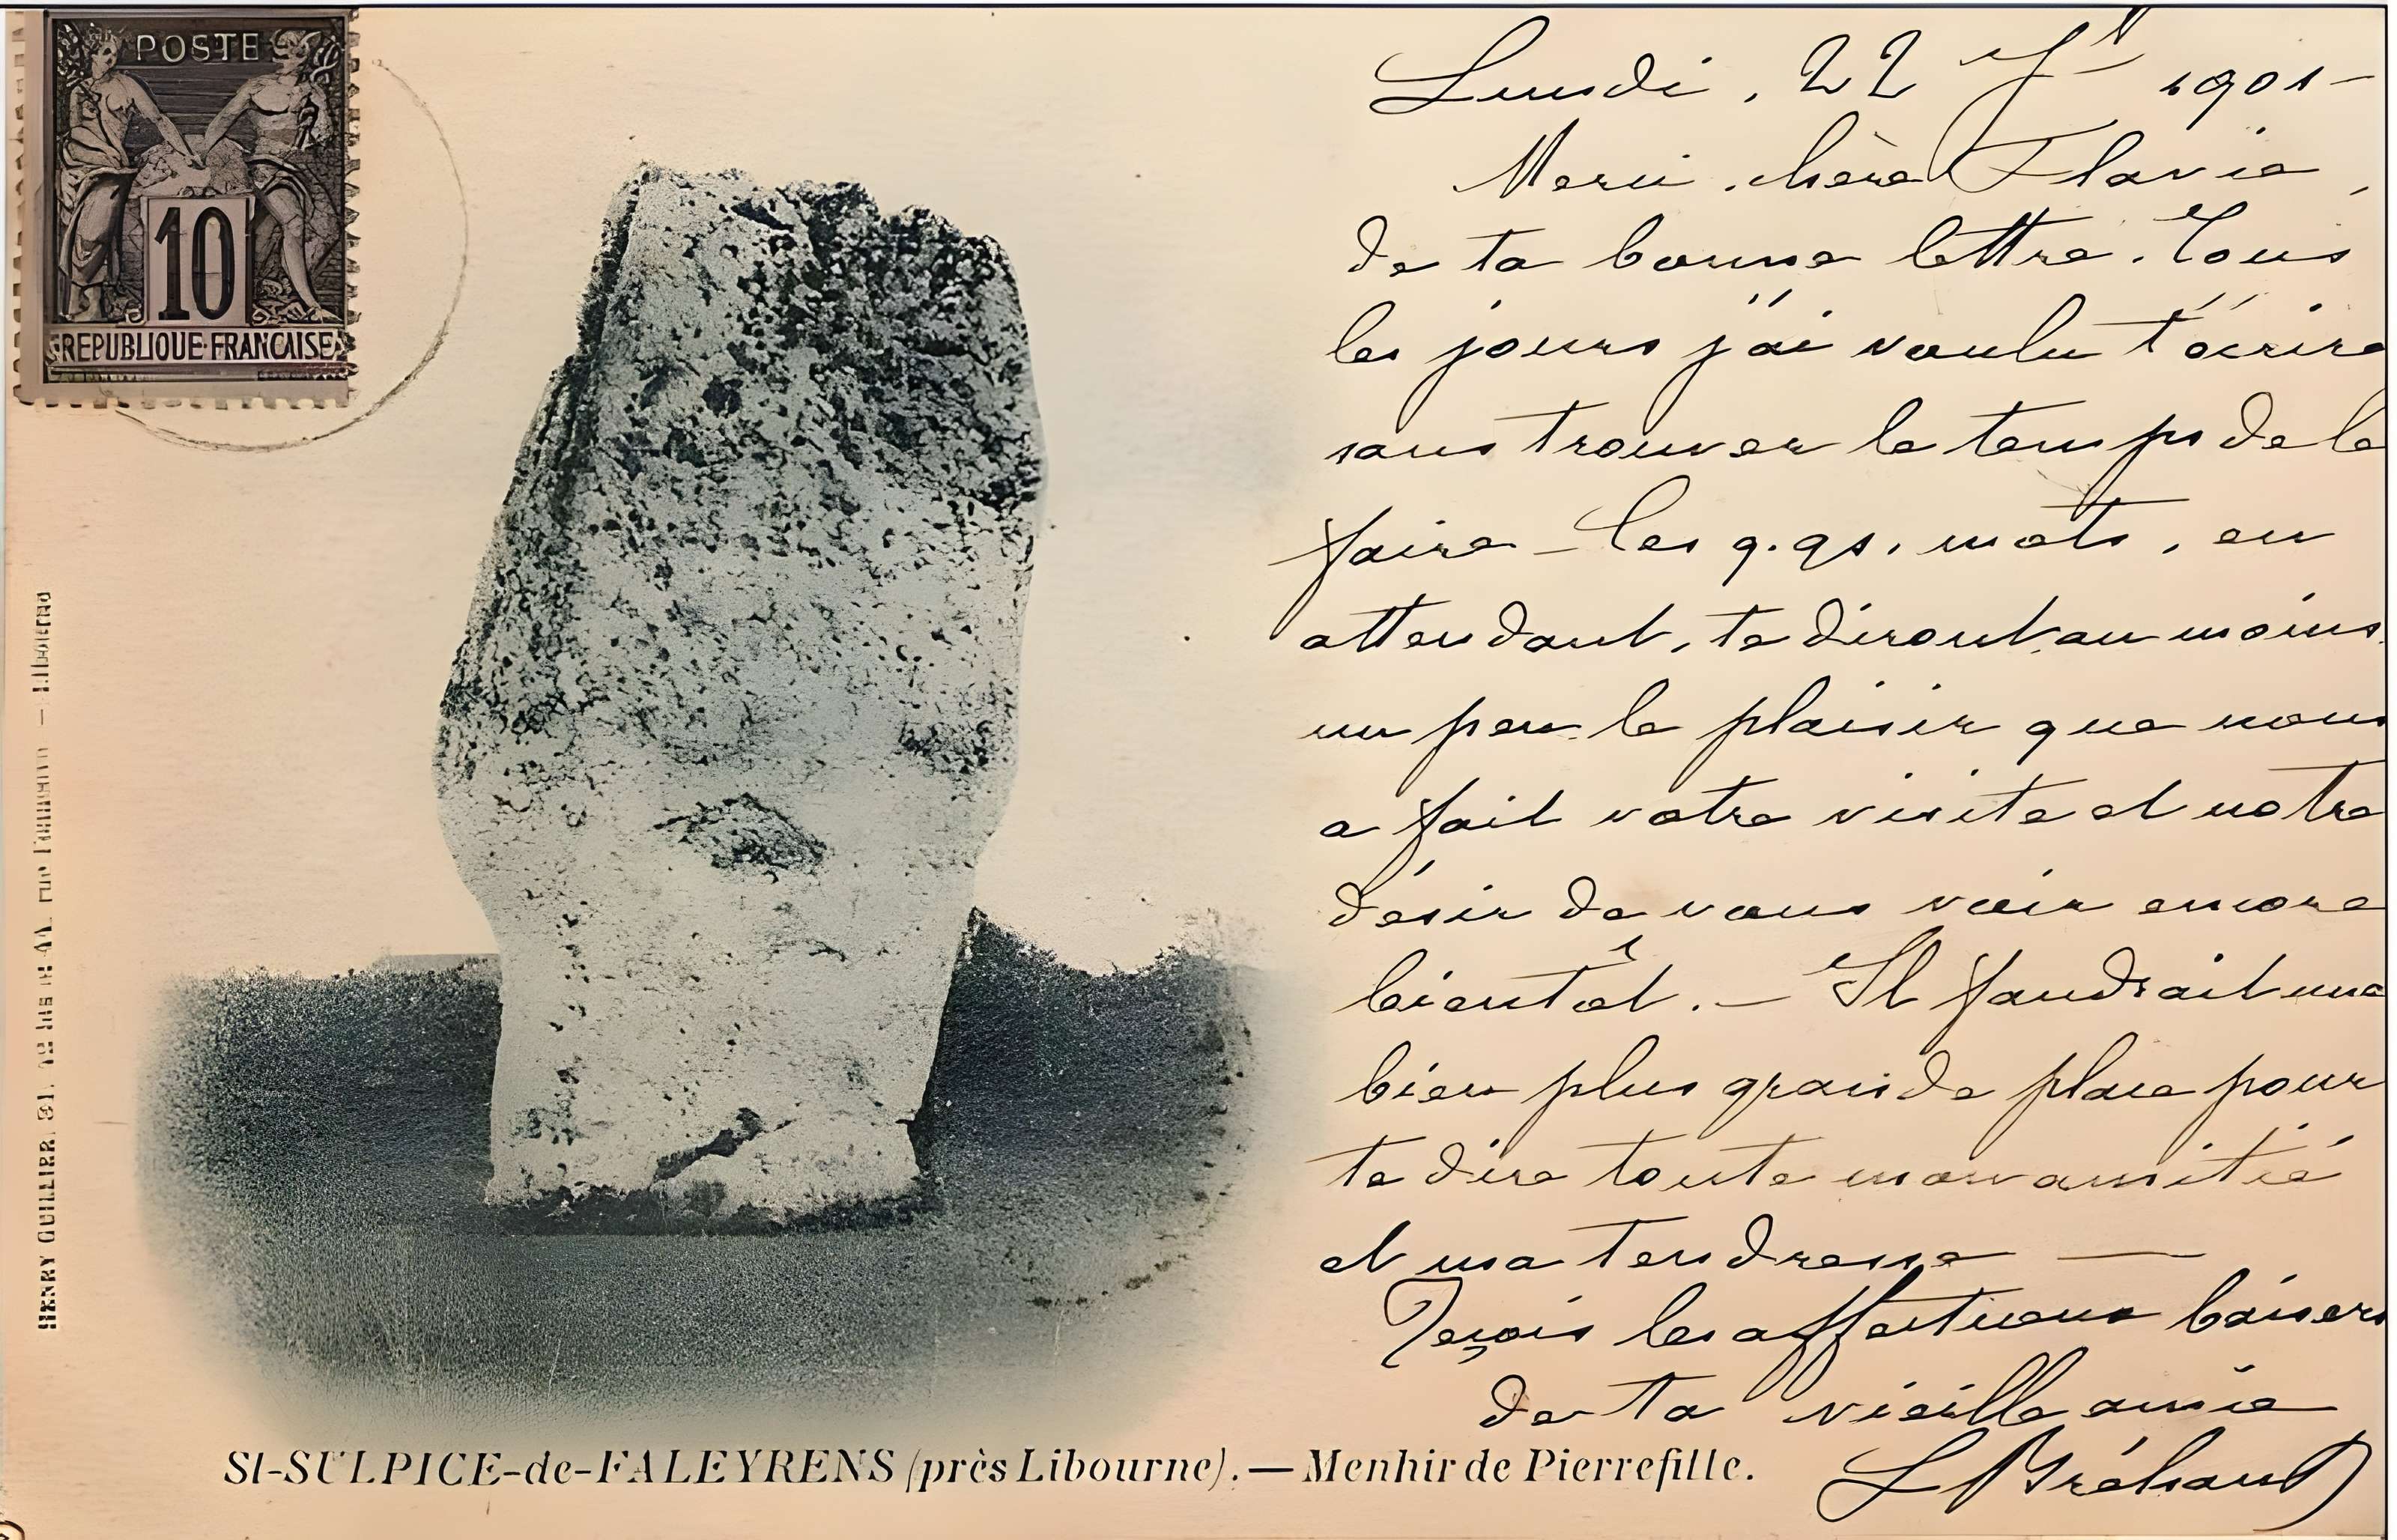 POSTE
10
REPUBLIQUE FRANCAISE
Lundi, 22 Jt 1901 -
Merci, chère Flavie,
de ta bonne lettre. Tous
les jours j'ai voulu t'écrire
sans trouver le temps de le
faire - Ces q.qs. mots, en
attendant, te diront au moins
un peu le plaisir que nous
a fait votre visite et notre
désir de vous voir encore
bientôt. - Il faudrait une
bien plus grande place pour
te dire toute mon amitié
et ma tendresse —
Reçois les affectueux baisers
de ta vieille amie
L Bréhant
St-SULPICE-de-FALEYRENS (près Libourne). — Menhir de Pierrefitte.
HENRY GUILLIER — Libourne